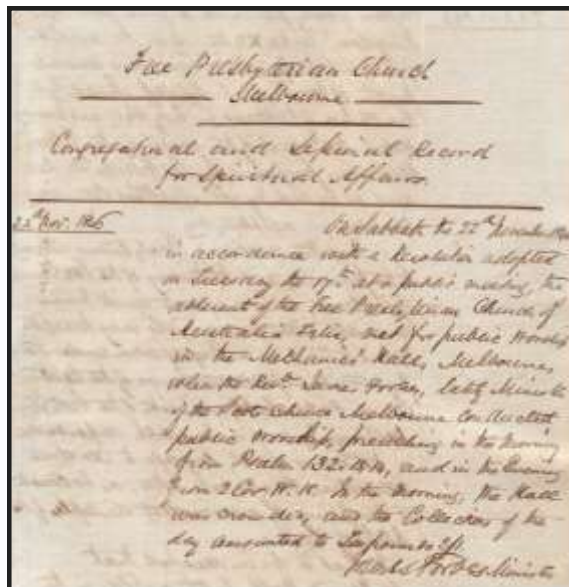 Free Presbyterian Church
Melbourne
Congregational and Sessional Record
for Spiritual Affairs.
22nd Nov. 1846
On Sabbath the 22nd November 1846
in accordance with a Resolution adopted
on Tuesday the 17th at a public meeting, the
adherents of the Free Presbyterian Church of
Australia Felix, met for public Worship
in the Mechanics Hall, Melbourne,
when the Revd. James Forbes, late Minister
of the Scots Church Melbourne conducted
public worship, preaching in the Morning
from Psalm 132. and in the Evening
from 2 Cor. In the Morning, the Hall
was crowded, and the Collection of the
day amounted to
Forbes Minister